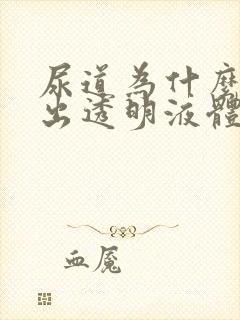 尿道為什麼
出透明液體
血魘